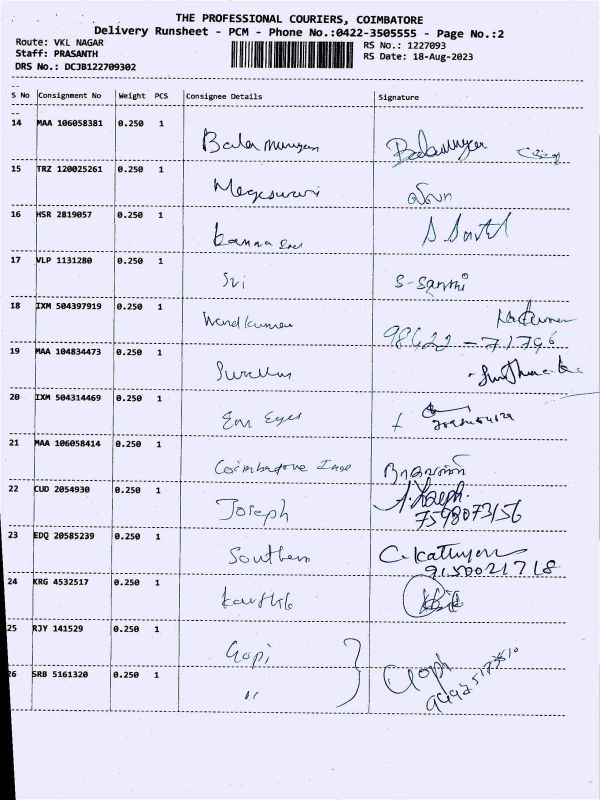 THE PROFESSIONAL COURIERS, COIMBATORE
Delivery Runsheet - PCM - Phone No.:0422-3505555 - Page No.:2
Route: VKL NAGAR
RS No.: 1227093
Staff: PRASANTH
RS Date: 18-Aug-2023
DRS No.: DCJB122709302
S No Consignment No Weight PCS Consignee Details Signature
14 MAA 106058381 0.250 1 Balamurugan
15 TRZ 120025261 0.250 1
16 HSR 2819057 0.250 1
17 VLP 1131280 0.250 1 Sri S-Santhi
18 IXM 504397919 0.250 1 Nandkumar
19 MAA 104834473 0.250 1
20 IXM 504314469 0.250 1 Eyes
21 MAA 106058414 0.250 1 Coimbatore
22 CUD 2054930 0.250 1 Joseph
7598073156
23 EDQ 20585239 0.250 1 Southern
9150021718
24 KRG 4532517 0.250 1 Karthik
25 RJY 141529 0.250 1 Gopi
26 SRB 5161320 0.250 1 "